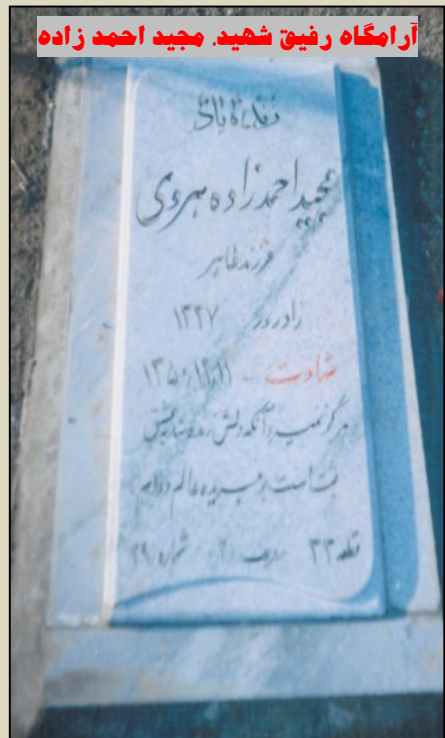 آرامگاه رفیق شهید. مجید احمد زاده
زنده یاد
مجید احمدزاده هروی
فرزند طاهر
زادروز ۱۳۲۷
شهادت -
هرگز نمیرد آنکه دلش زنده شد بعشق
ثبت است بر جریده عالم دوام ما
قطعه ۳۳ ردیف شماره ۲۹